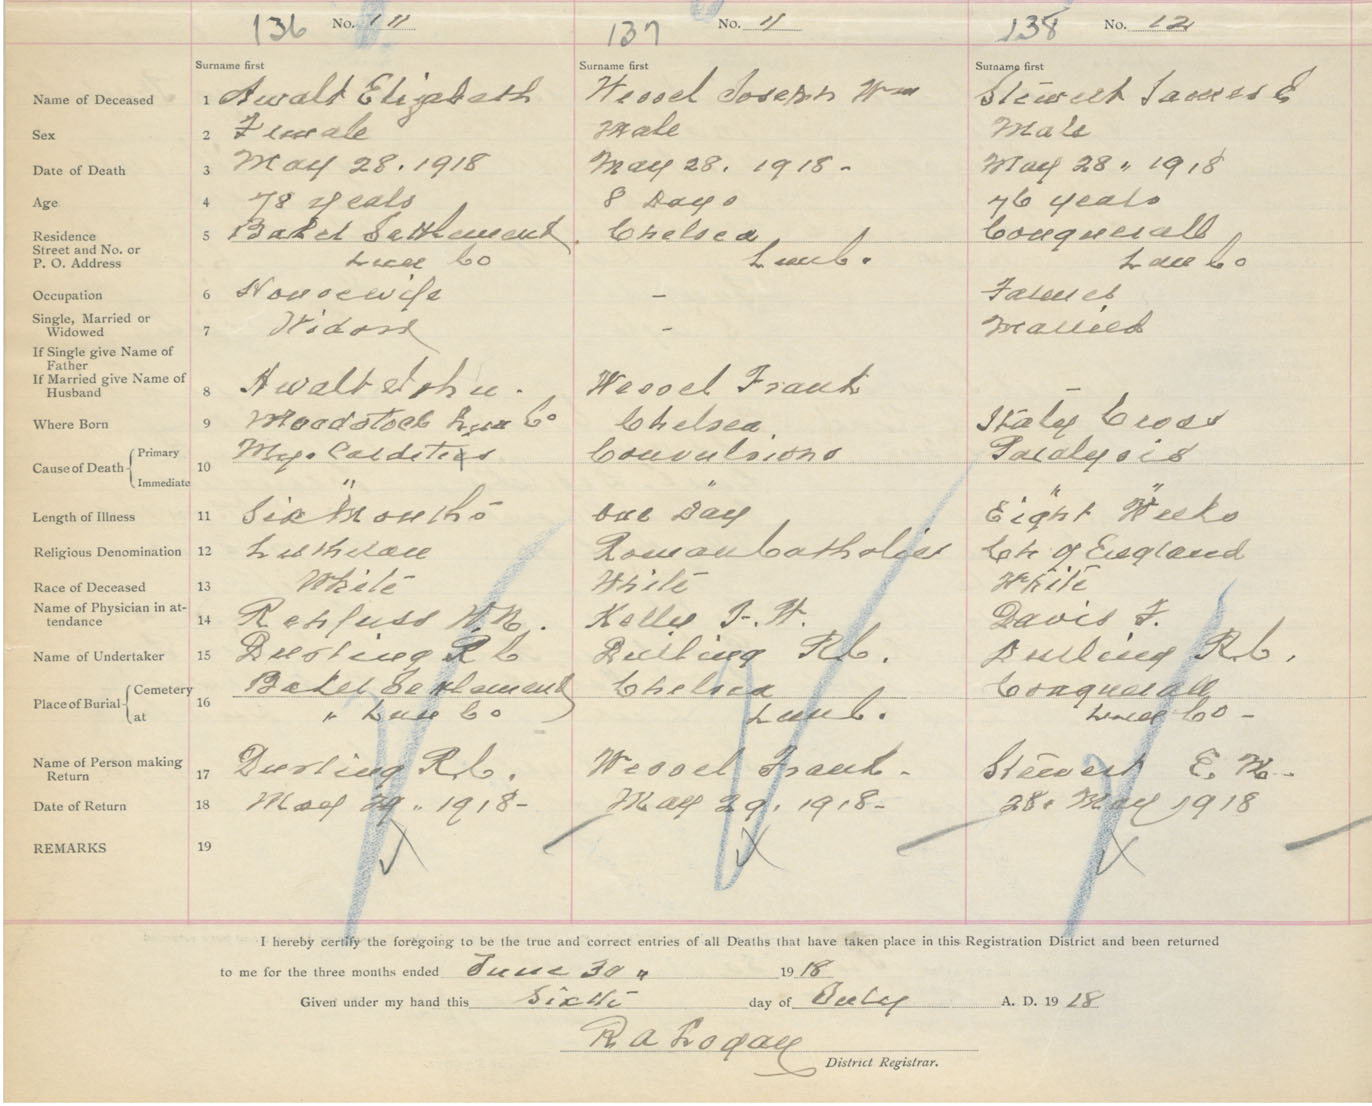 136 No. 11 137 No. 11 138 No. 12
Surname first Surname first Surname first
Name of Deceased 1 Awalt Elizabeth Wessel Joseph Wm Stewert James E
Sex 2 Female Male Male
Date of Death 3 May 28. 1918 May 28. 1918 - May 28 " 1918
Age 4 78 years 8 Days 76 years
Residence 5 Baker Settlement Chelsea Conquerall
Street and No. or
P. O. Address Lun Co Lun C. Lun Co
Occupation 6 Housewife - Farmer
Single, Married or
Widowed 7 Widow - Married
If Single give Name of
Father
If Married give Name of
Husband 8 Awalt John. Wessel Frank -
Where Born 9 Woodstock Lun Co Chelsea Italy Cross
Cause of Death Primary 10 Myocarditis Convulsions Paralysis
Immediate " " " "
Length of Illness 11 Six Months one Day Eight Weeks
Religious Denomination 12 Lutheran Roman Catholic Ch of England
Race of Deceased 13 White White White
Name of Physician in at-
tendance 14 Rehfuss W.N. Kelly F. W. Davis F.
Name of Undertaker 15 Durling R C Durling R C. Durling R.C.
Place of Burial Cemetery 16 Baker Settlement Chelsea Conquerall
at " Lun Co Lun C. Lun Co -
Name of Person making
Return 17 Durling R.C. Wessel Frank - Stewert E.
Date of Return 18 May 29 " 1918 - May 29. 1918 - 28. May 1918
REMARKS 19
I hereby certify the foregoing to be the true and correct entries of all Deaths that have taken place in this Registration District and been returned
to me for the three months ended June 30 " 1918
Given under my hand this Sixth day of July A. D. 1918
R A Logan
District Registrar.